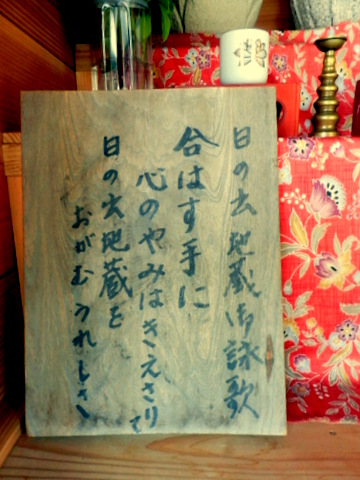 日の出地蔵御詠歌
合はす手に
心のやみはきえさりて
日の出地蔵を
おがむうれしさ